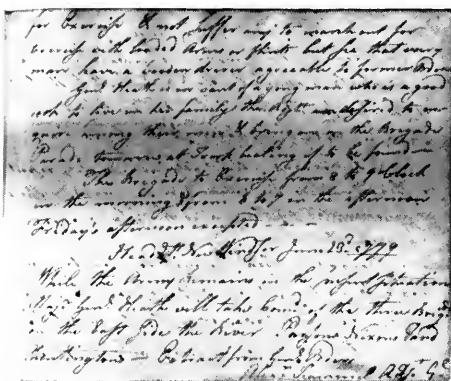 for Exercise & not suffer any to march out for
Exercise with loaded Arms or flints but see that every
man have a wooden driver agreeable to former orders
Genl Heath is in want of a young man who is a good
to live in his family the Regts are desired to en
quire among their men & bring one on the Brigade
Parade tomorrow at Troop beating if to be found
The Brigade to Exercise from 8 to 9 oClock
in the morning & from to in the afternoon
Friday's afternoon excepted
Head Qrs New Windsor June 23d 1779
While the Army Remains in the present Situation
Majr Genl Heath will take comd of the three Brigds
on the East Side the River Nixons and
Huntingtons Extract from Genl Orders
Scammel A G